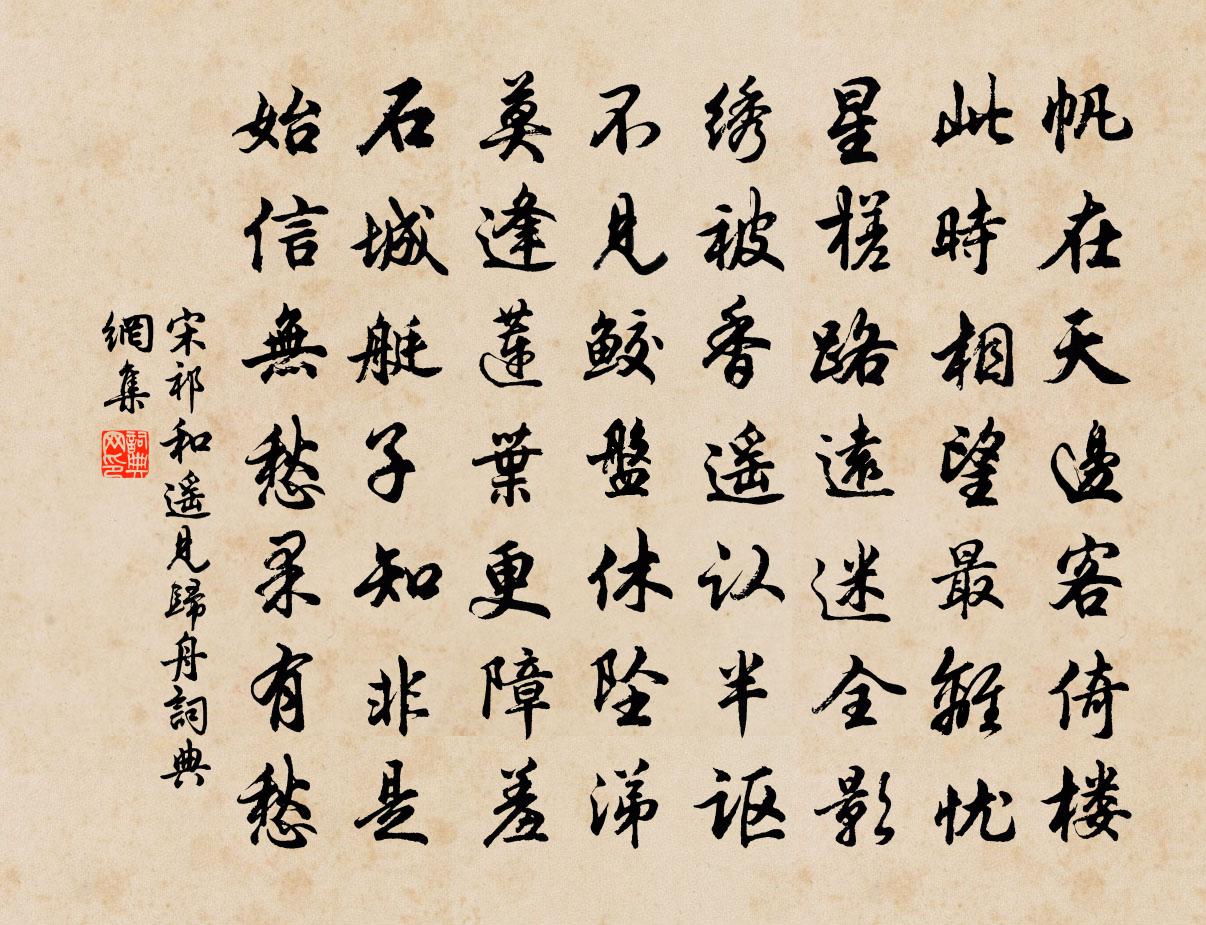 帆在天邊客倚楼
此時相望最離忧
星槎路遠迷全影
绣被香遥认半讴
不見鲛盤休坠涕
莫逢蓮葉更障羞
石城艇子知非是
始信無愁果有愁
宋祁和遥見歸舟詞典
網集
詞典
网印